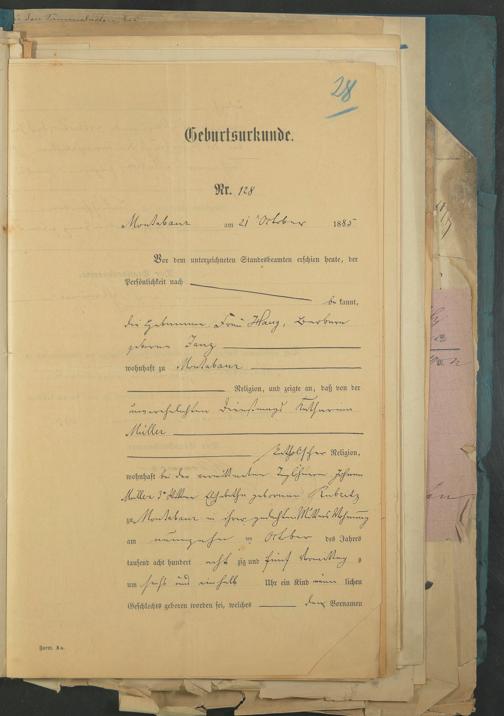 28
Geburtsurkunde.
Nr. 128
Montabaur am 21 October 1885
Vor dem unterzeichneten Standesbeamten erschien heute, der
Persönlichkeit nach
bekannt,
die Hebamme Frau Barbara
geborene
wohnhaft zu Montabaur
Religion, und zeigte an, daß von der
unverehelichten Dienstmagd Katharina
Müller
katholischer Religion,
wohnhaft bei der verwittweten Johann
Müller Elisabetha geborenen
zu Montabaur in ihrer Mutters Wohnung
am neunzehn ten October des Jahres
tausend acht hundert acht zig und fünf Vormittags
um sechs und einhalb Uhr ein Kind männlichen
Geschlechts geboren worden sei, welches den Vornamen
Form. Aa.